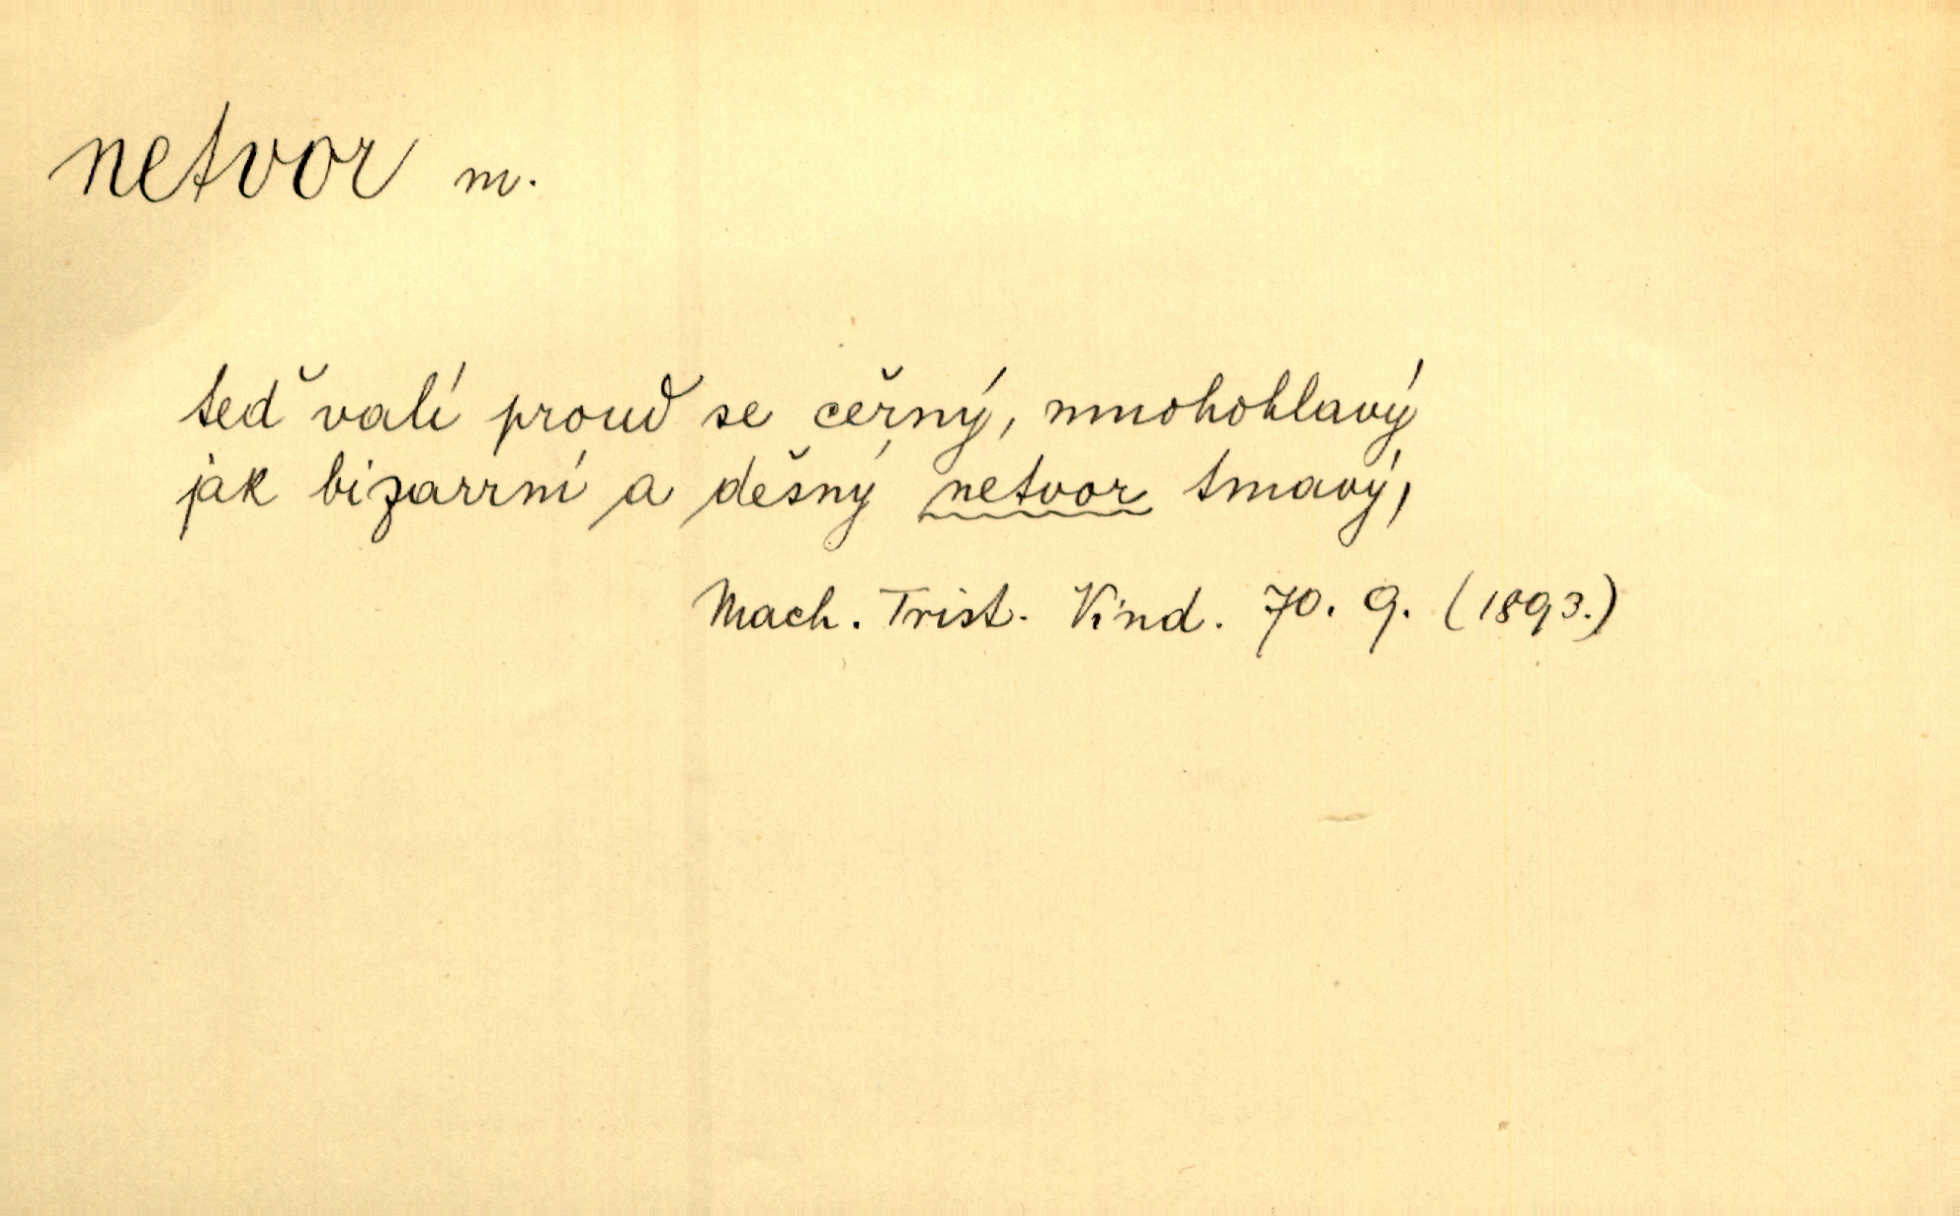 netvor m.
teď valí proud se černý, mnohohlavý
jak bizarrní a děsný netvor tmavý,
Mach. Trist. Vind. 70. 9. (1893.)